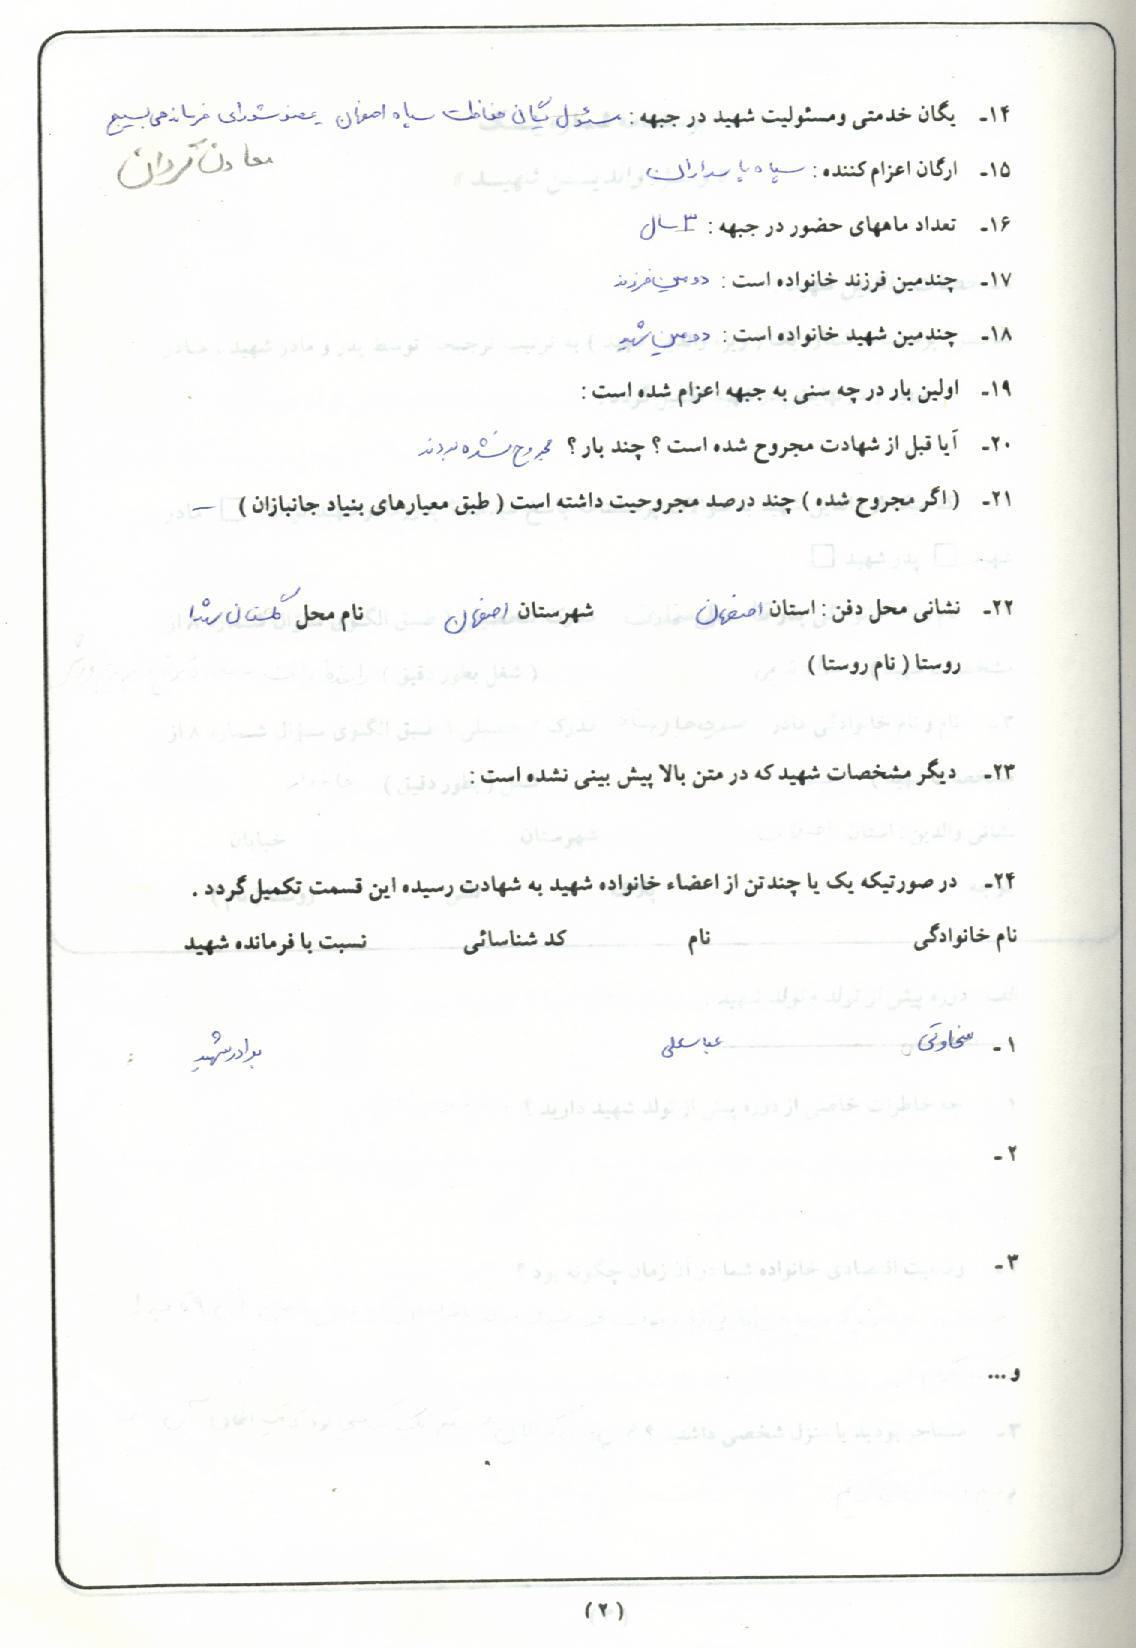 ۱۴- یگان خدمتی ومسئولیت شهید در جبهه : مسئول یگان حفاظت سپاه اصفهان عضو شورای فرماندهی بسیج
معاون گردان
۱۵- ارگان اعزام کننده : سپاه پاسداران
۱۶- تعداد ماههای حضور در جبهه : ۳ سال
۱۷- چندمین فرزند خانواده است : دومین فرزند
۱۸- چندمین شهید خانواده است : دومین شهید
۱۹- اولین بار در چه سنی به جبهه اعزام شده است :
۲۰- آیا قبل از شهادت مجروح شده است ؟ چند بار ؟ مجروح نشده بودند
۲۱- ( اگر مجروح شده ) چند درصد مجروحیت داشته است ( طبق معیارهای بنیاد جانبازان ) –
۲۲- نشانی محل دفن : استان اصفهان شهرستان اصفهان نام محل گلستان شهدا
روستا ( نام روستا )
۲۳- دیگر مشخصات شهید که در متن بالا پیش بینی نشده است :
۲۴- در صورتیکه یک یا چند تن از اعضاء خانواده شهید به شهادت رسیده این قسمت تکمیل گردد .
نام خانوادگی نام کد شناسائی نسبت با فرمانده شهید
۱- سخاوتی عباسعلی برادر شهید
۲-
۳-
و ...
( ۲ )